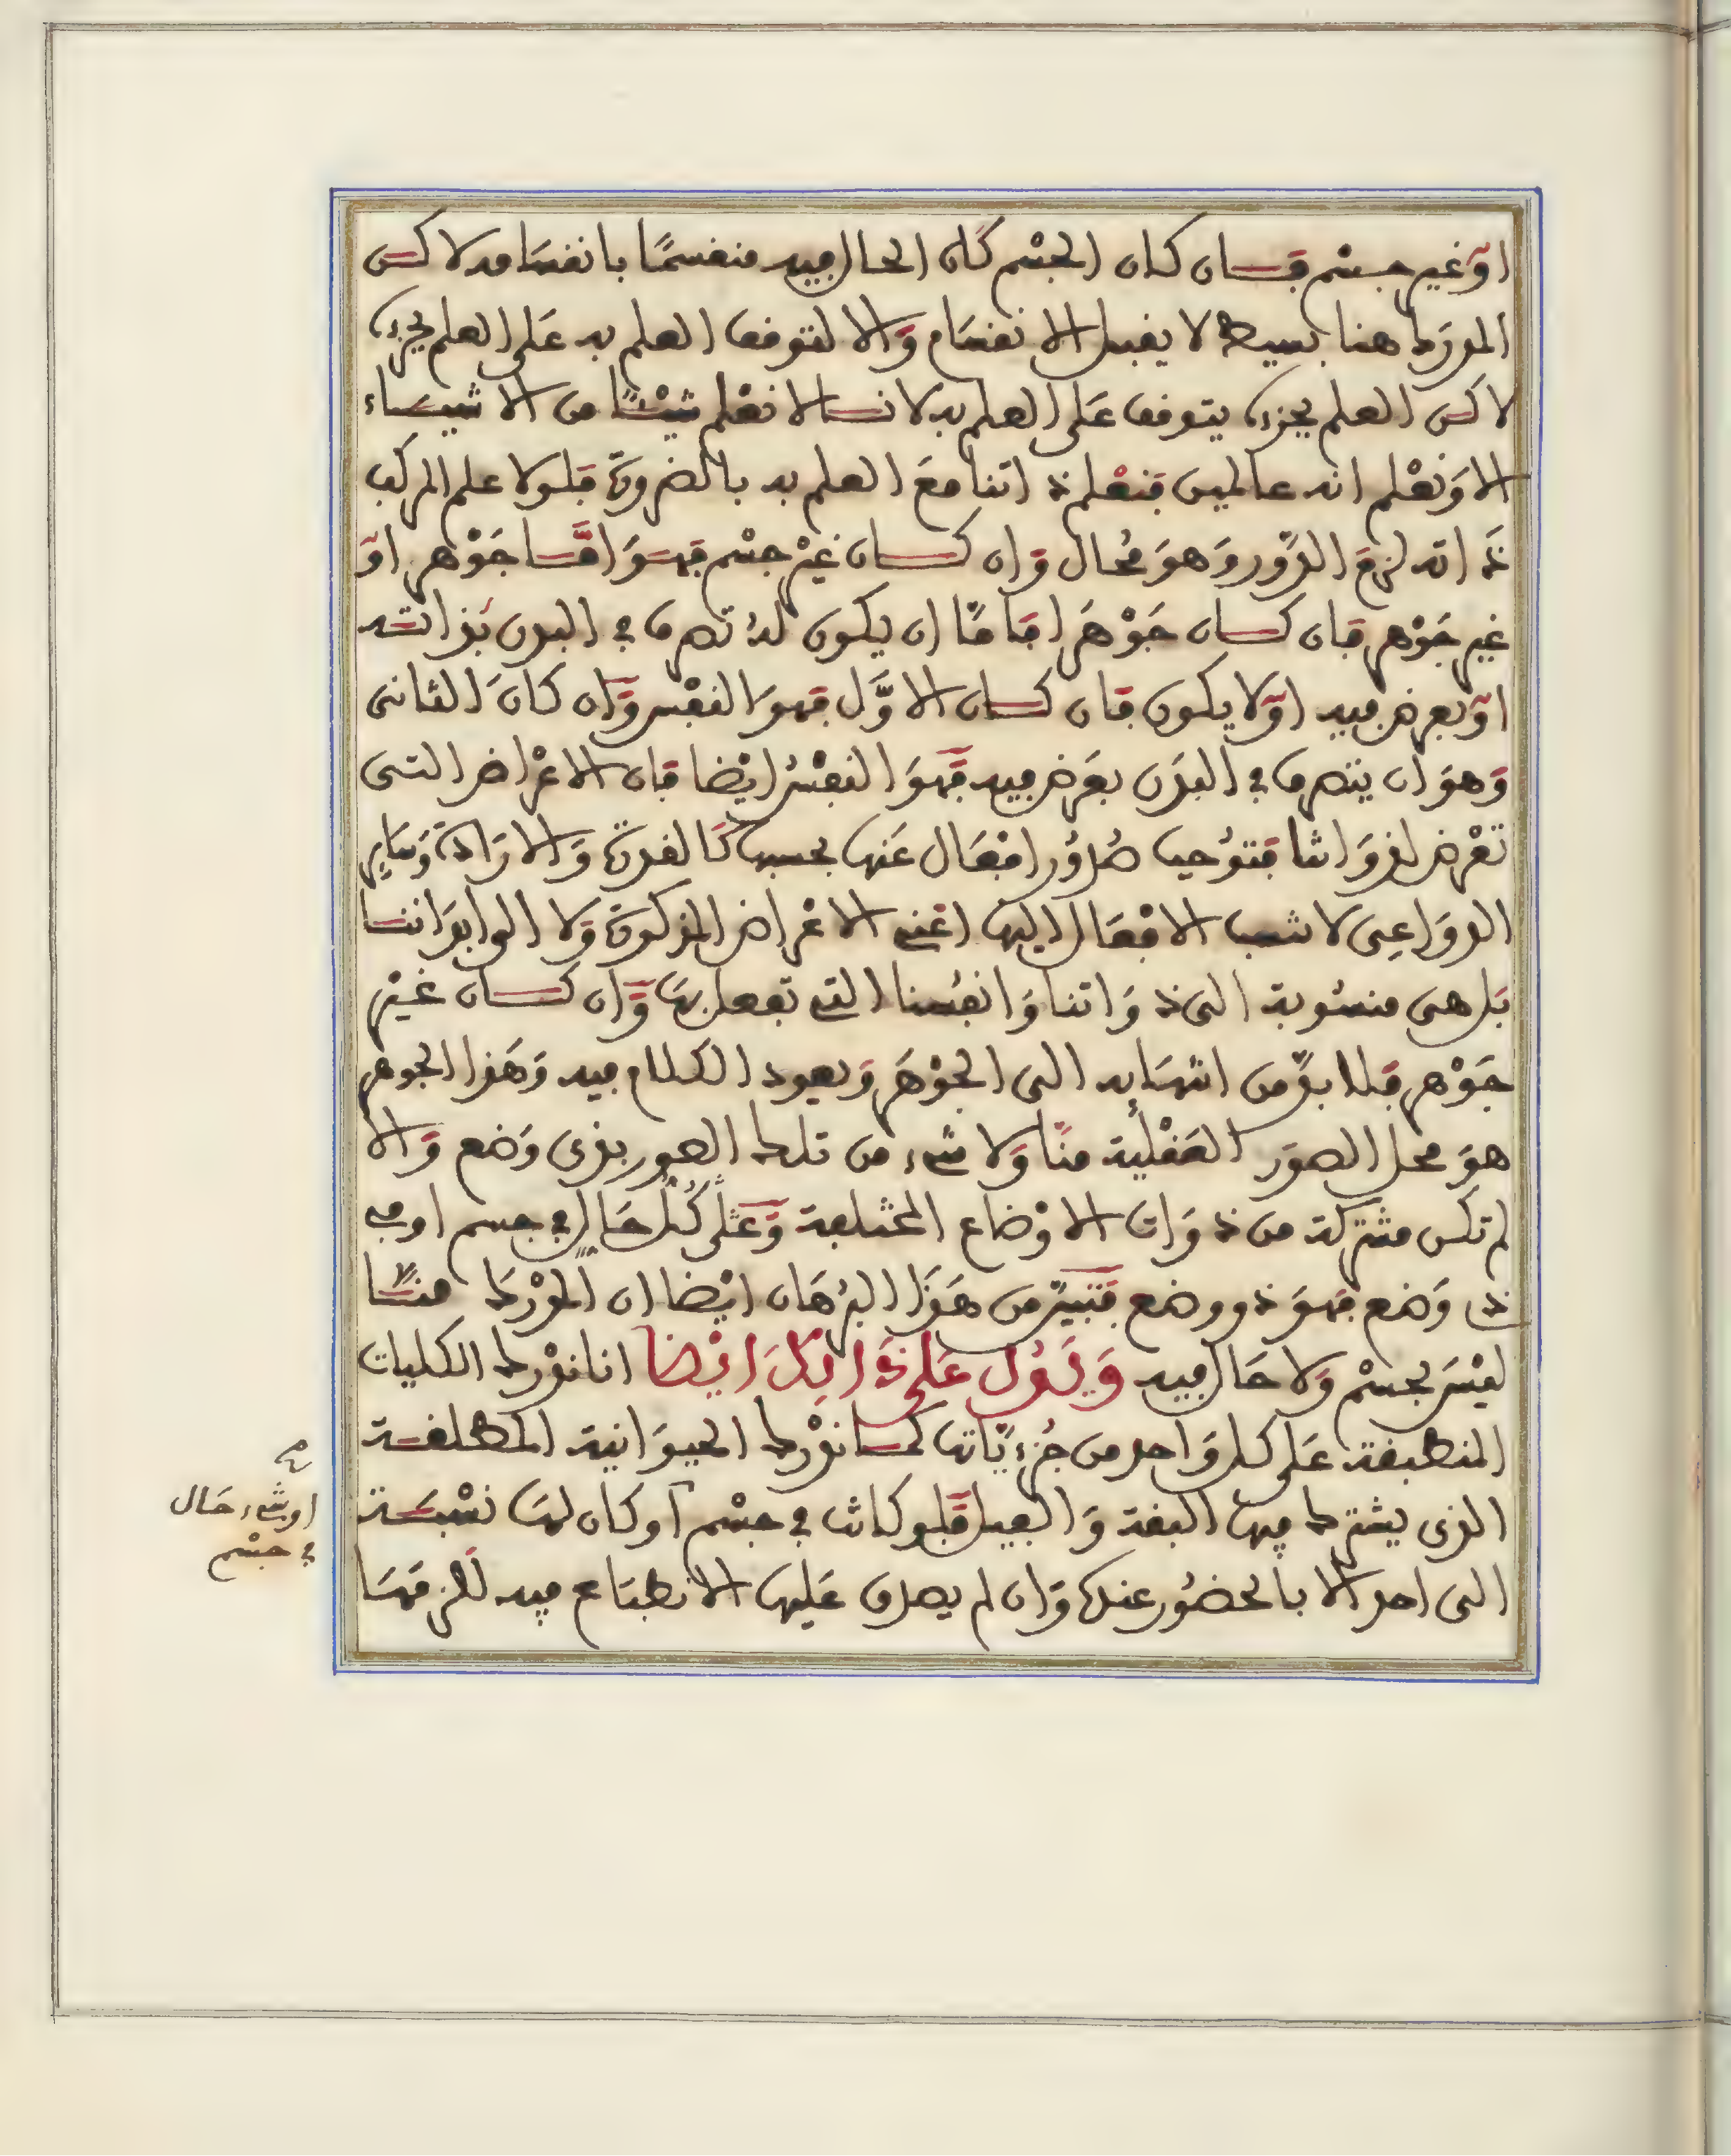 او غير جسم فان كان الجسم كان الحال فيه منقسمًا بانقسامه لاكن
المدرك هنا بسيط لا يقبل الانقسام والا لتوقف العلم به على العلم بجزءه
لاكن العلم بجزءه يتوقف على العلم به لانا لا نعلم شيئا من الاشياء
الا ونعلم انه عالمين فنعلم ذاتنا مع العلم به بالضرورة فلولا علم المركب
ذاته لزم الدور وهو محال وان كان غير جسم فهو اما جوهر او
غير جوهر فان كان جوهرا فاما ان يكون له تصرف في البدن بذاته
او بعرض فيه او لا يكون فان كان الاول فهو النفس وان كان الثاني
وهو ان يتصرف في البدن بعرض فيه فهو النفس ايضا فان الاعراض التي
تعرض لذواتنا فتوجب صدور افعال عنها بحسبها كالقدرة والارادة وساير
الدواعي لا تنسب الافعال اليها اعني الاعراض المذكورة ولا الى ابداننا
بل هي منسوبة الى ذواتنا وانفسنا التي تفعل بها وان كان غير
جوهر فلا بد من انتهايه الى الجوهر ويعود الكلام فيه وهذا الجوهر
هو محل الصور العقلية منا ولا شيء من تلك الصور بذي وضع والا
لم تكن مشتركة من ذوات الاوضاع المختلفة وعلى كل حال في جسم او في
ذي وضع فهو ذو وضع فتبين من هذا البرهان ايضا ان المدرك منا
ليس بجسم ولا حال فيه ويدل على ذلك ايضا انا ندرك الكليات
المنطبقة على كل واحد من جزءياتها كما ندرك الحيوانية المطلقة
الذي يشترك فيها البقة والفيل فلو كانت في جسم او كان لها نسبة
الى احد الا بالحضور عندها وان لم يصدق عليها الانطباع فيه للزمها
او شيء حال
في جسم